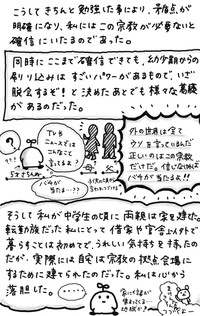 こうしてきちんと勉強した事により、矛盾点が
明確になり、私にはこの宗教が必要ないと
確信にいたるのであった。
同時にここまで確信できても、幼少期からの
刷り込みは すごいパワーがあるもので、いざ
脱会するぞ！と決めたあとでも様々な葛藤
があるのだった。
TVも
ニュースでは
こんなこと
言ってるよ？
父
母
外の世界は全て
ウソを言っているんだ
正しいのはこの宗教
だけだ。信じなければ
バチが当たるよ!!
バチが
当たる…??
そうして私が中学生の頃に両親は家を建た。
転勤族だった私にとって借家や官舎以外で
暮らすことは初めてで、うれしい気持ちを持ったの
だが、実際には自宅は宗教の拠点会場に
するために建てられたのだった。私は心から
落胆した。…